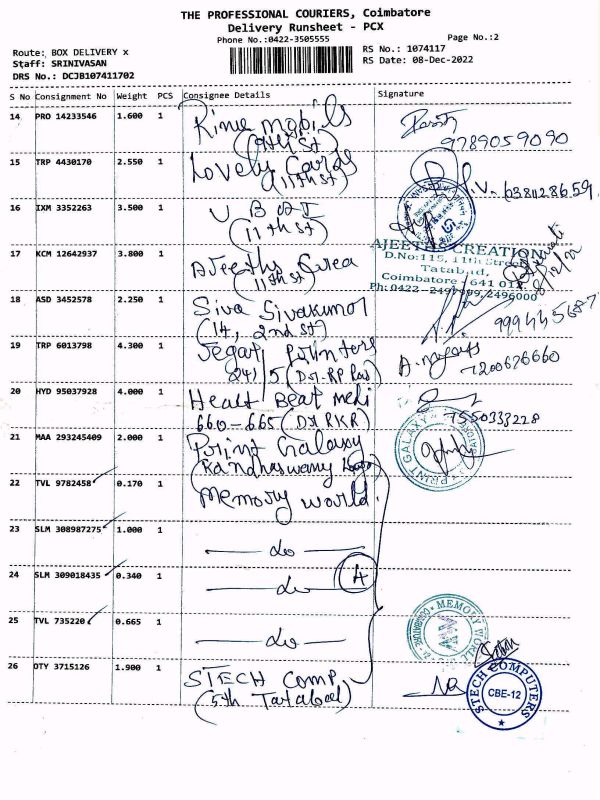 THE PROFESSIONAL COURIERS, Coimbatore
Delivery Runsheet - PCX
Phone No.:0422-3505555
Page No.:2
Route: BOX DELIVERY x
RS No.: 1074117
Staff: SRINIVASAN
RS Date: 08-Dec-2022
DRS No.: DCJB107411702
S No Consignment No Weight PCS Consignee Details Signature
14 PRO 14233546 1.600 1 Rime mobils
(9th st)
9789059090
15 TRP 4430170 2.550 1 Lovely Cards
(11th st)
16 IXM 3352263 3.500 1 U B O I
(11th st)
17 KCM 12642937 3.800 1 AJeeths Crea
(11th st)
AJEETHS CREATION
D.No:115, 11th Street
Tatabad,
Coimbatore - 641 012
18 ASD 3452578 2.250 1 Siva Sivakumar
(14, 2nd st)
19 TRP 6013798 4.300 1 Jegat Printers
24/5 (D.r. RP
7200626660
20 HYD 95037928 4.000 1 Heart Beat medi
660-665 (Dr RKR)
7550333228
21 MAA 293245409 2.000 1 Print Galaxy
(Kandhaswamy
PRINT GALAXY
22 TVL 9782458 0.170 1 memory world.
23 SLM 308987275 1.000 1 — do —
24 SLM 309018435 0.340 1 — do —
4
25 TVL 735220 0.665 1 — do —
MEMORY WORLD
26 OTY 3715126 1.900 1 STECH Comp.
(5th Tatabad)
STECH COMPUTERS
CBE-12